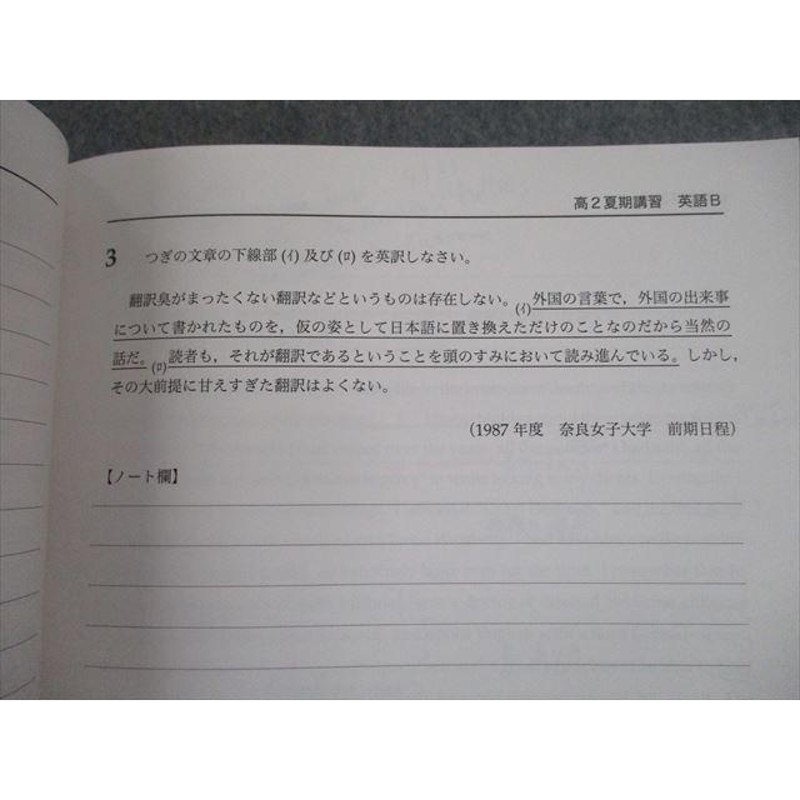 高2夏期講習 英語B
3 つぎの文章の下線部(イ)及び(ロ)を英訳しなさい。
翻訳臭がまったくない翻訳などというものは存在しない。(イ)外国の言葉で，外国の出来事
について書かれたものを，仮の姿として日本語に置き換えただけのことなのだから当然の
話だ。(ロ)読者も，それが翻訳であるということを頭のすみにおいて読み進んでいる。しかし，
その大前提に甘えすぎた翻訳はよくない。
(1987年度 奈良女子大学 前期日程)
【ノート欄】